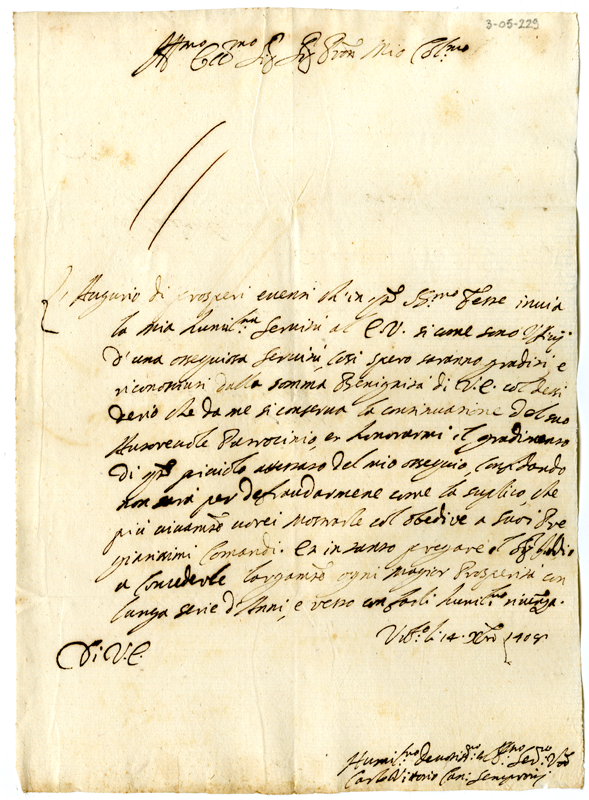 3-05-229
Ill.mo Ecc.mo Sig. Sig. Pron Mio Col.mo
L'Augurio di prosperi eventi ch'in q.te SS.me Feste invia
la mia humil.ma servitù al E.V. si come sono
d'una ossequiosa servitù, così spero saranno graditi, e
riconosciuti dalla somma Benignità di V.E. col desi
derio che da me si conserva la continuazione del suo
Autorevole Patrocinio, et honorarmi il gradimento
di q.to picciolo attestato del mio ossequio, confidando
non sarà per defraudarmene come la suplico, che
più vivam.te vorei mostrarle col obedire a suoi Pre
giatissimi Comandi. Et in tanto pregare il Sig.
a concederle largam.te ogni magior Prosperità con
lunga serie d'Anni, e resto con farli humil.ma riverenza.
Vit.o li 14 Xbre 1708
Di V.E.
Humil.mo Devotiss.mo et Obl.mo Ser.re V.ro
Carlo Vittorio Can. Sempronij